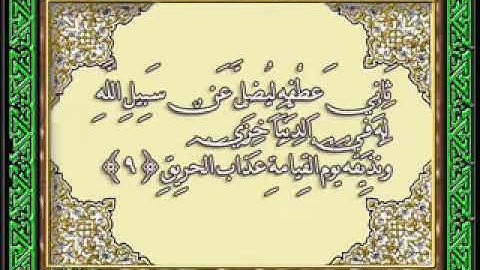 ثَانِيَ عِطْفِهِ لِيُضِلَّ عَن سَبِيلِ اللَّهِ
لَهُ فِي الدُّنْيَا خِزْيٌ
وَنُذِيقُهُ يَوْمَ الْقِيَامَةِ عَذَابَ الْحَرِيقِ ﴿٩﴾